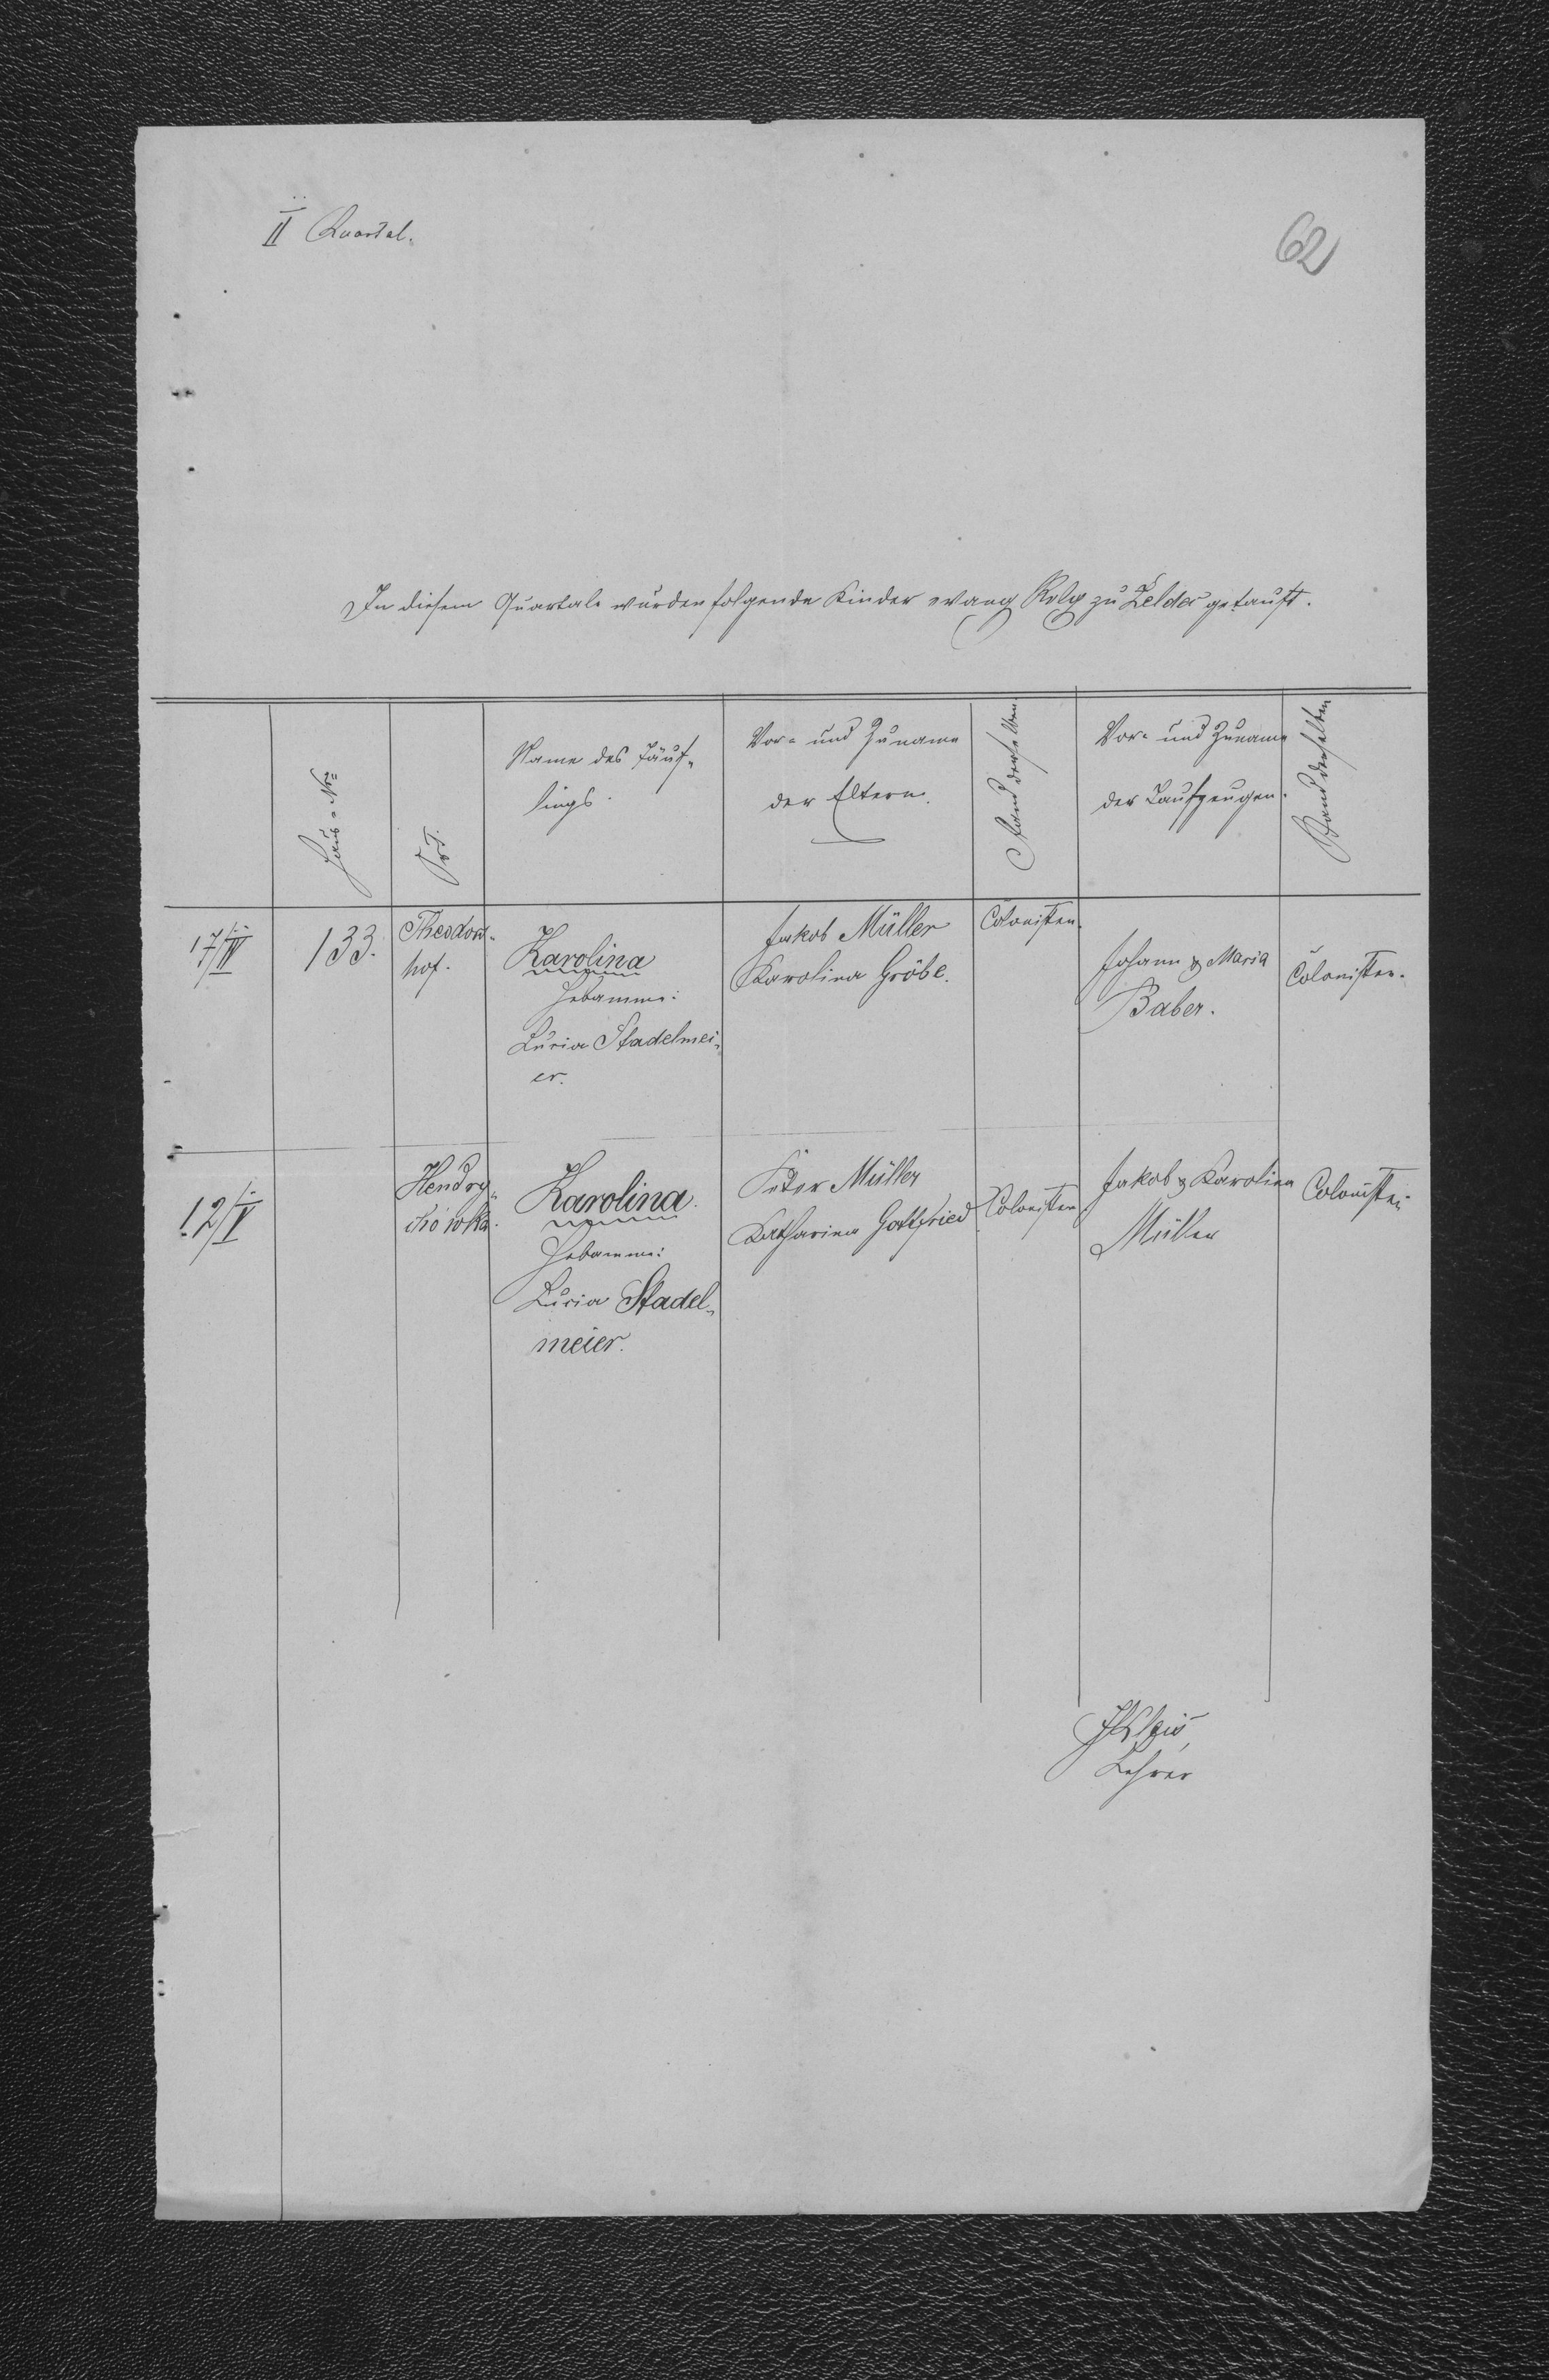 II Quartal.
62
In diesem Quartale wurden folgende Kinder evang Relig zu Zeldec getauft.
Haus-Nro
Ort.
Name des Täuf-
lings.
Vor- und Zuname
der Eltern.
Stand derselben
Vor- und Zuname
der Taufzeugen.
Stand derselben
17/IV
133.
Theodors-
hof.
Karolina
Hebamme:
Luzia Stadelmei-
er.
Jakob Müller
Karolina Gröbe.
Colonisten.
Johann & Maria
Baber.
Colonisten.
12/V
Hendry-
kówka.
Karolina
Hebamme:
Luzia Stadel-
meier.
Peter Müller
Katharina Gottfried
Colonisten
Jakob & Karolina
Müller
Colonisten
Lehrer